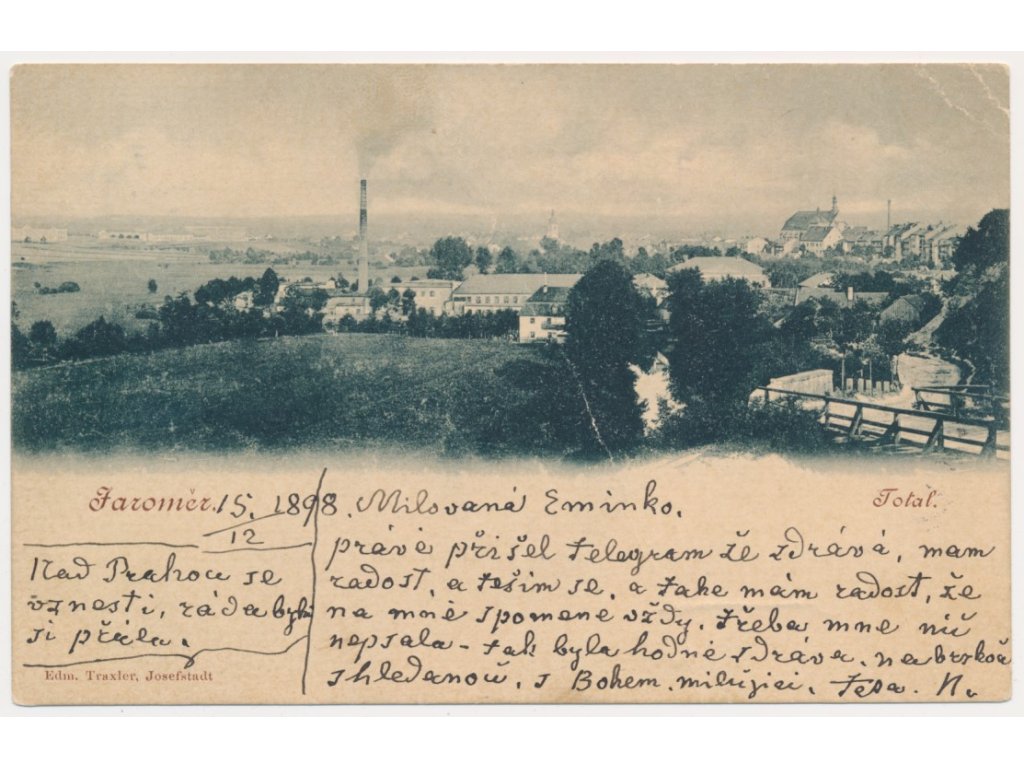 Jaroměr. 15. 1898.
12
Total.
Nad Prahou se
vznesti, ráda bych
si přála.
Milovaná Eminko.
právě přišel telegram že zdrává, mam
radost, a těšim se, a take mám radost, že
na mně spomene vždy. třeba mne nič
nepsala - tak byla hodně zdráva. na brzkoú
shledanoú. s Bohem. milujici. Tepa. N.
Edm. Traxler, Josefstadt